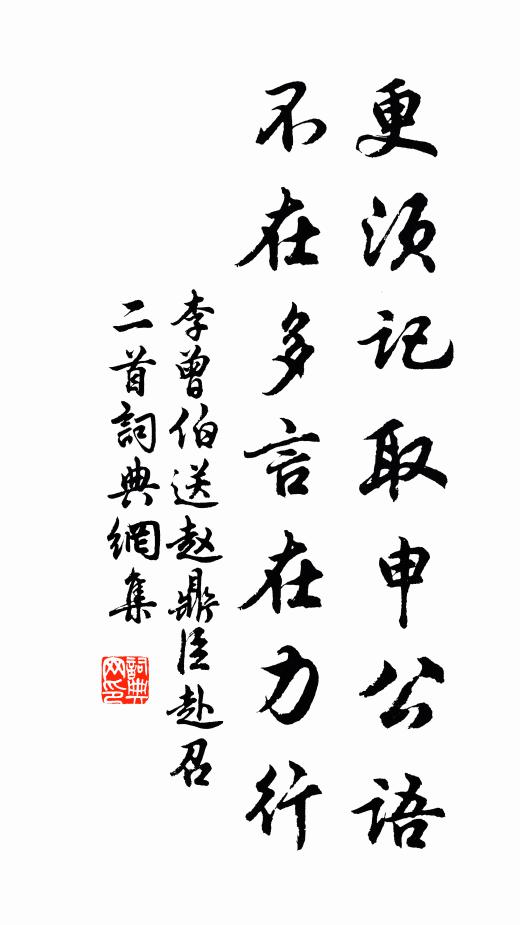 更须记取申公语
不在多言在力行
李曾伯送赵鼎臣赴召
二首詞典網集
詞典网印